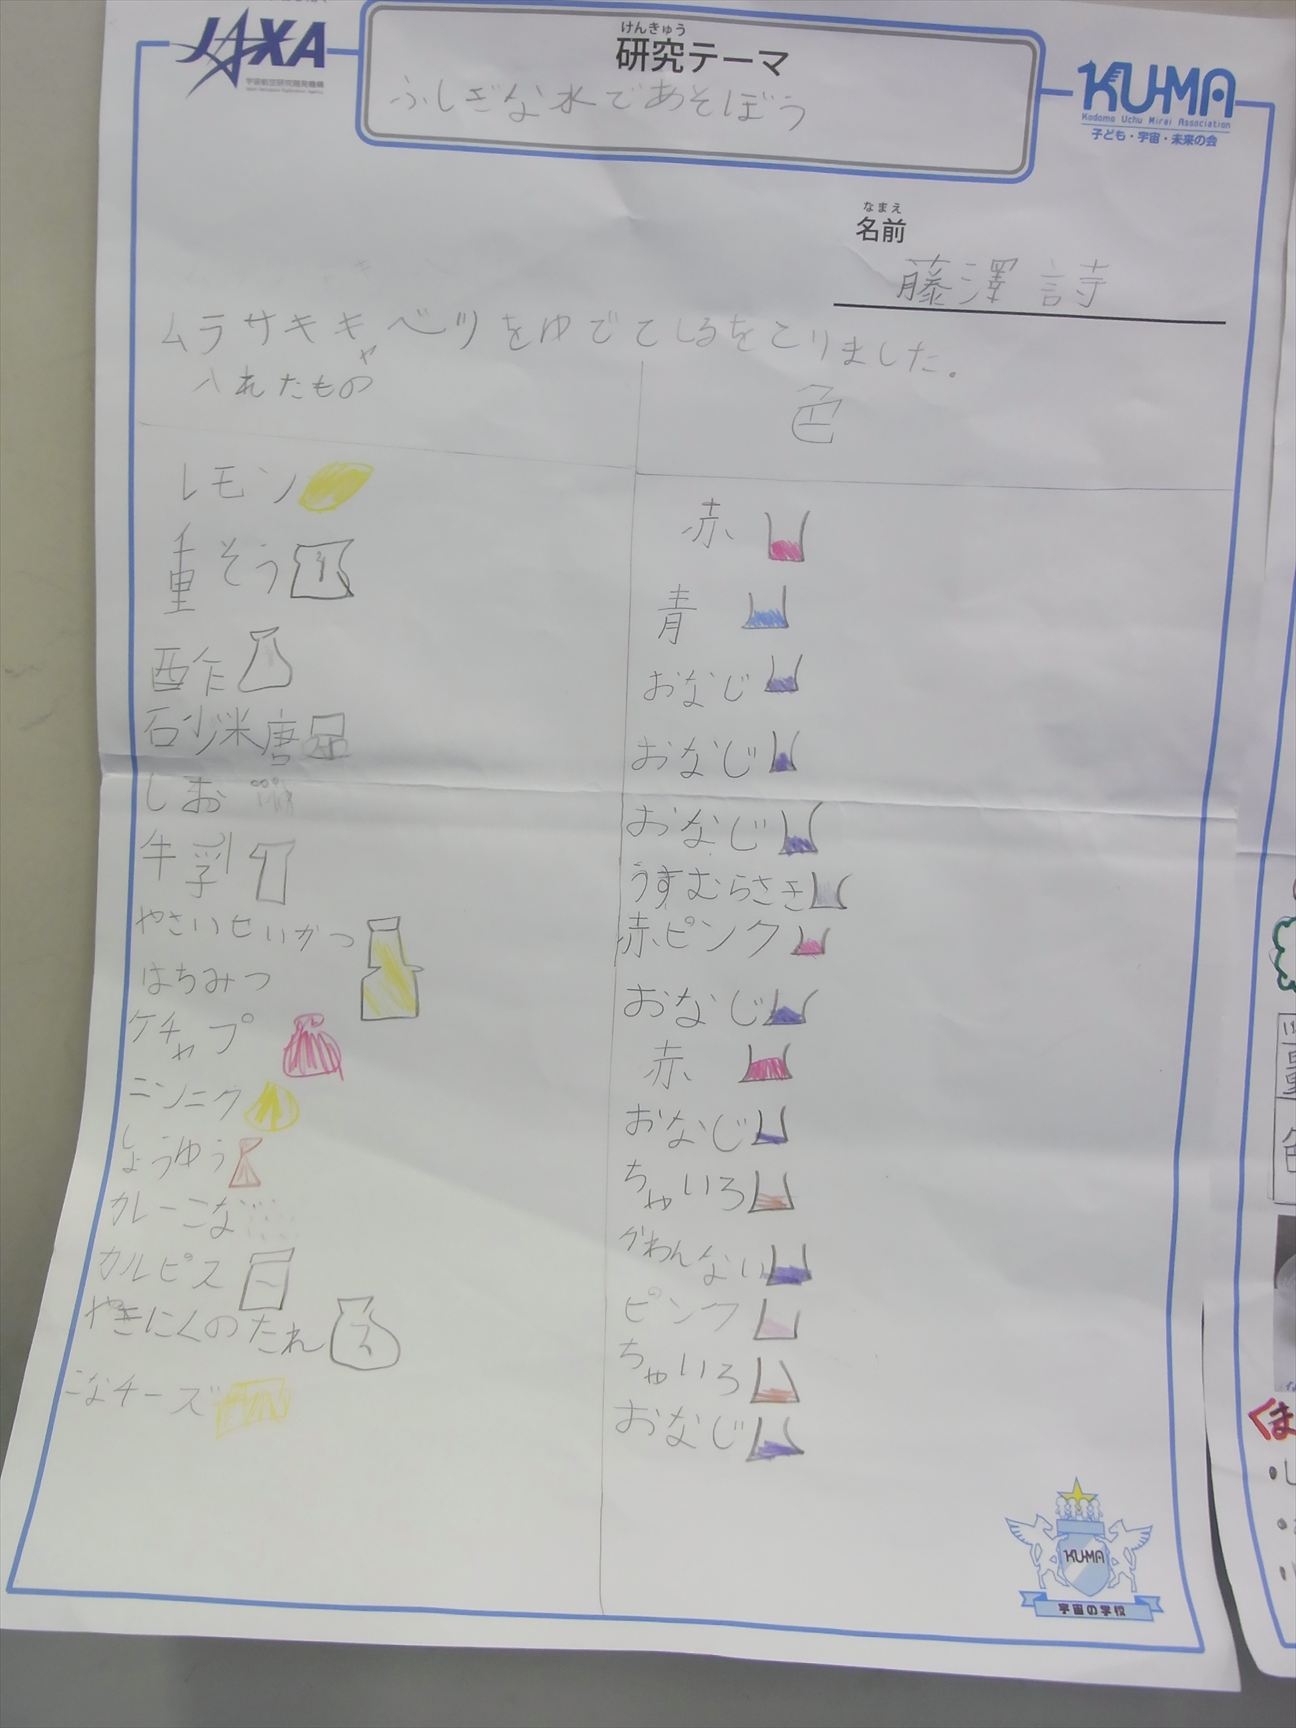 JAXA
宇宙航空研究開発機構
けんきゅう
研究テーマ
ふしぎな水であそぼう
KU-MA
Kodomo Uchu Mirai Association
子ども・宇宙・未来の会
なまえ
名前
藤澤 詩
ムラサキキャベツをゆでてしるをとりました。
入れたもの
色
レモン
赤
重そう
青
酢
おなじ
砂糖
おなじ
しお
おなじ
牛乳
うすむらさき
やさいせいかつ
赤ピンク
はちみつ
おなじ
ケチャプ
赤
ニンニク
おなじ
しょうゆう
ちゃいろ
カレーこな
かわんない
カルピス
ピンク
やきにくのたれ
ちゃいろ
こなチーズ
おなじ
KU-MA
宇宙の学校
くま